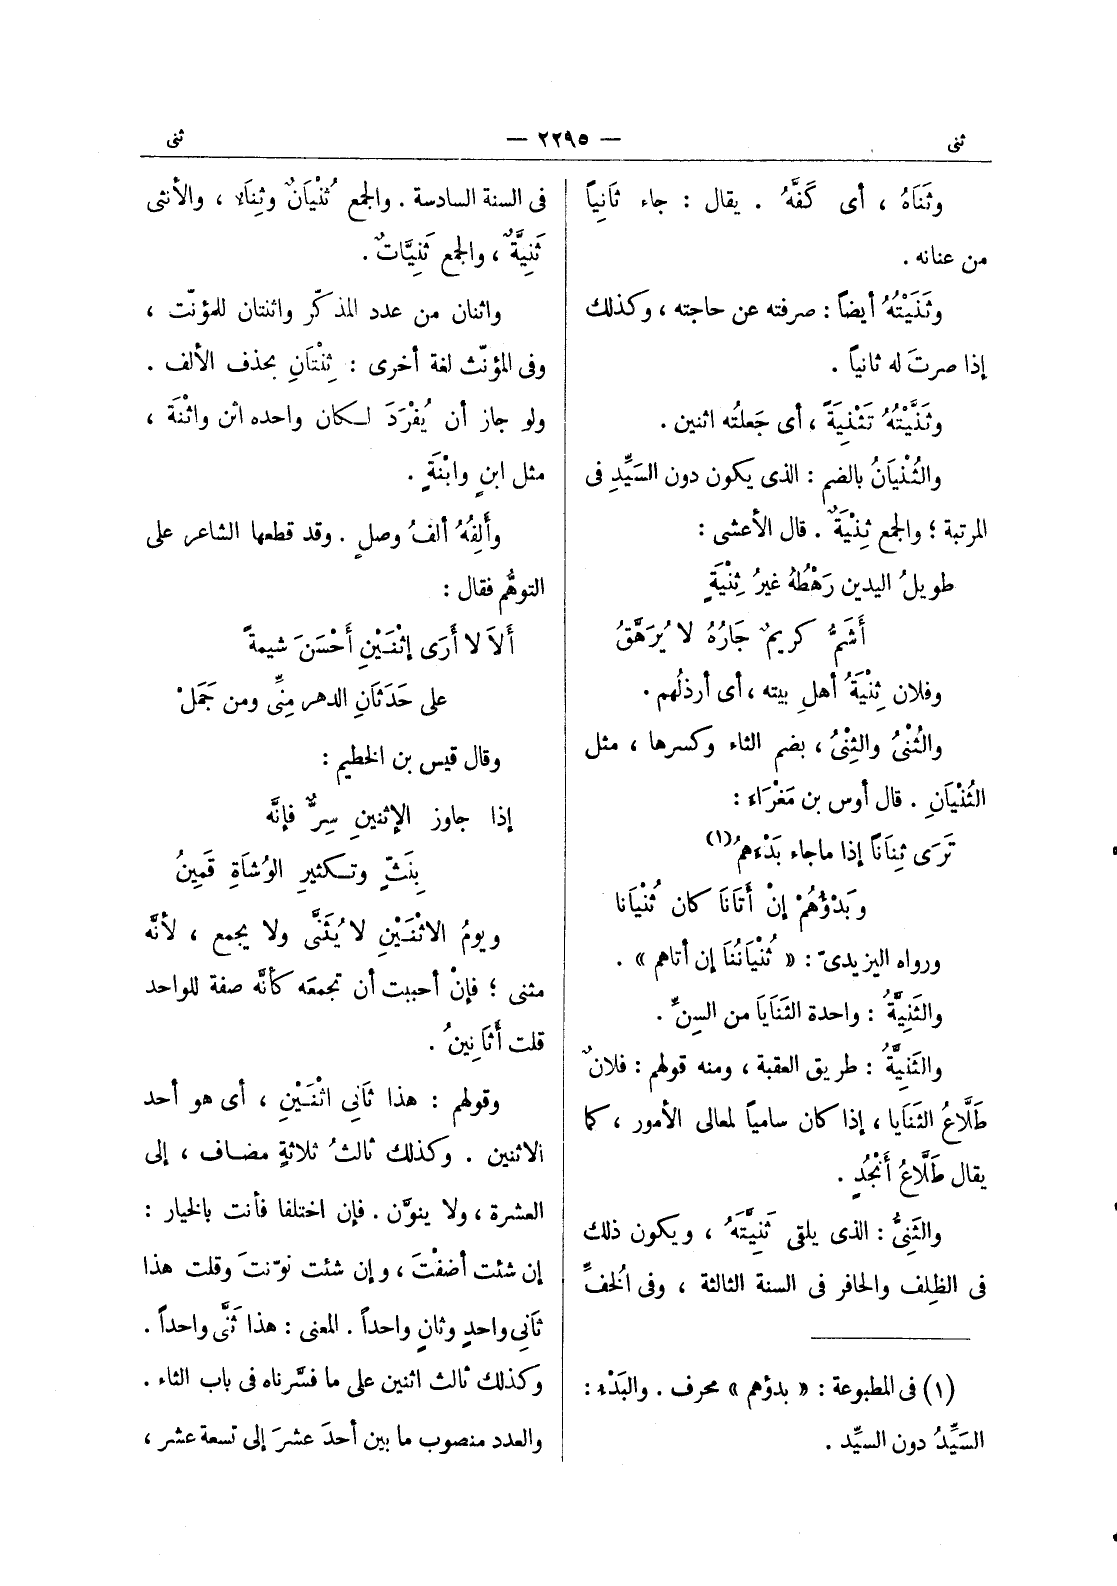 ثنى — ٢٢٩٥ — ثنى
وثَنَاهُ ، أى كَفَّهُ . يقال : جاء ثَانِياً
من عنانه .
وثَنَيْتُهُ أيضاً : صرفته عن حاجته ، وكذلك
إذا صرتَ له ثانياً .
وثَنَّيْتُهُ تَثْنِيَةً ، أى جَعلتُه اثنين .
والثُنْيَانُ بالضم : الذى يكون دون السَيِّدِ فى
المرتبة ؛ والجمع ثِنْيَةٌ . قال الأعشى :
طويلُ اليدين رَهْطُهُ غيرُ ثِنْيَةٍ
أَشَمُّ كريمٌ جَارُهُ لا يُرَهَّقُ
وفلان ثِنْيَةُ أهلِ بيته ، أى أرذلُهم .
والثُنْىُ والثِنْىُ ، بضم الثاء وكسرها ، مثل
الثُنْيَانِ . قال أوس بن مَغْرَاءَ :
تَرَى ثِنَانَا إذا ماجاء بَدْءَهمُ(١)
وبَدْؤُهُمْ إنْ أَتَانَا كان ثُنْيَانا
ورواه اليزيدىّ : « ثُنْيَانُنَا إن أتاهم » .
والثَنِيَّةُ : واحدة الثَنَايَا من السِنِّ .
والثَنِيَّةُ : طريق العقبة ، ومنه قولهم : فلانٌ
طَلَّاعُ الثَنَايا ، إذا كان سامياً لمعالى الأمور ، كما
يقال طَلَّاعُ أَنْجُدٍ .
والثَنِىُّ : الذى يلقى ثَنِيَّتَهُ ، ويكون ذلك
فى الظِلف والحافر فى السنة الثالثة ، وفى الُخفِّ
(١) فى المطبوعة : « بدؤهم » محرف . والبَدْء :
السَيِّدُ دون السيِّد .
فى السنة السادسة . والجمع ثُنْيَانٌ وثِنَاء ، والأنثى
ثَنِيَّةٌ ، والجمع ثَنِيَّاتٌ .
واثنان من عدد المذكّر واثنتان للمؤنّث ،
وفى المؤنّث لغة أخرى : ثِنْتَانِ بحذف الألف .
ولو جاز أن يُفْرَدَ لكان واحده اثن واثْنَة ،
مثل ابنٍ وابْنَةٍ .
وأَلِفُهُ ألفُ وصلٍ . وقد قطعها الشاعر على
التوهُّم فقال :
أَلاَ لا أَرَى إثْنَيْنِ أَحْسَنَ شيمةً
على حَدَثَانِ الدهر مِنِّى ومن جَمَلْ
وقال قيس بن الخطيم :
إذا جاوز الإثنينِ سِرٌّ فإنَّه
بِنَثٍّ وتكثيرِ الوُشَاةِ قَمِينُ
ويومُ الاثْنَيْنِ لا يُثَنَّى ولا يجمع ، لأنَّه
مثنى ؛ فإنْ أحببت أن تجمعَه كأنَّه صفة للواحد
قلت أَثَانِينُ .
وقولهم : هذا ثَانِى اثْنَيْنِ ، أى هو أحد
الاثنين . وكذلك ثالثُ ثلاثةٍ مضاف ، إلى
العشرة ، ولا ينوَّن . فإن اختلفا فأنت بالخيار :
إن شئت أضفْتَ ، وإن شئت نوّنتَ وقلت هذا
ثَانِى واحدٍ وثانٍ واحداً . المعنى : هذا ثَنَّى واحداً .
وكذلك ثالث اثنين على ما فسَّرناه فى باب الثاء .
والعدد منصوب ما بين أحدَ عشرَ إلى تسعة عشر ،